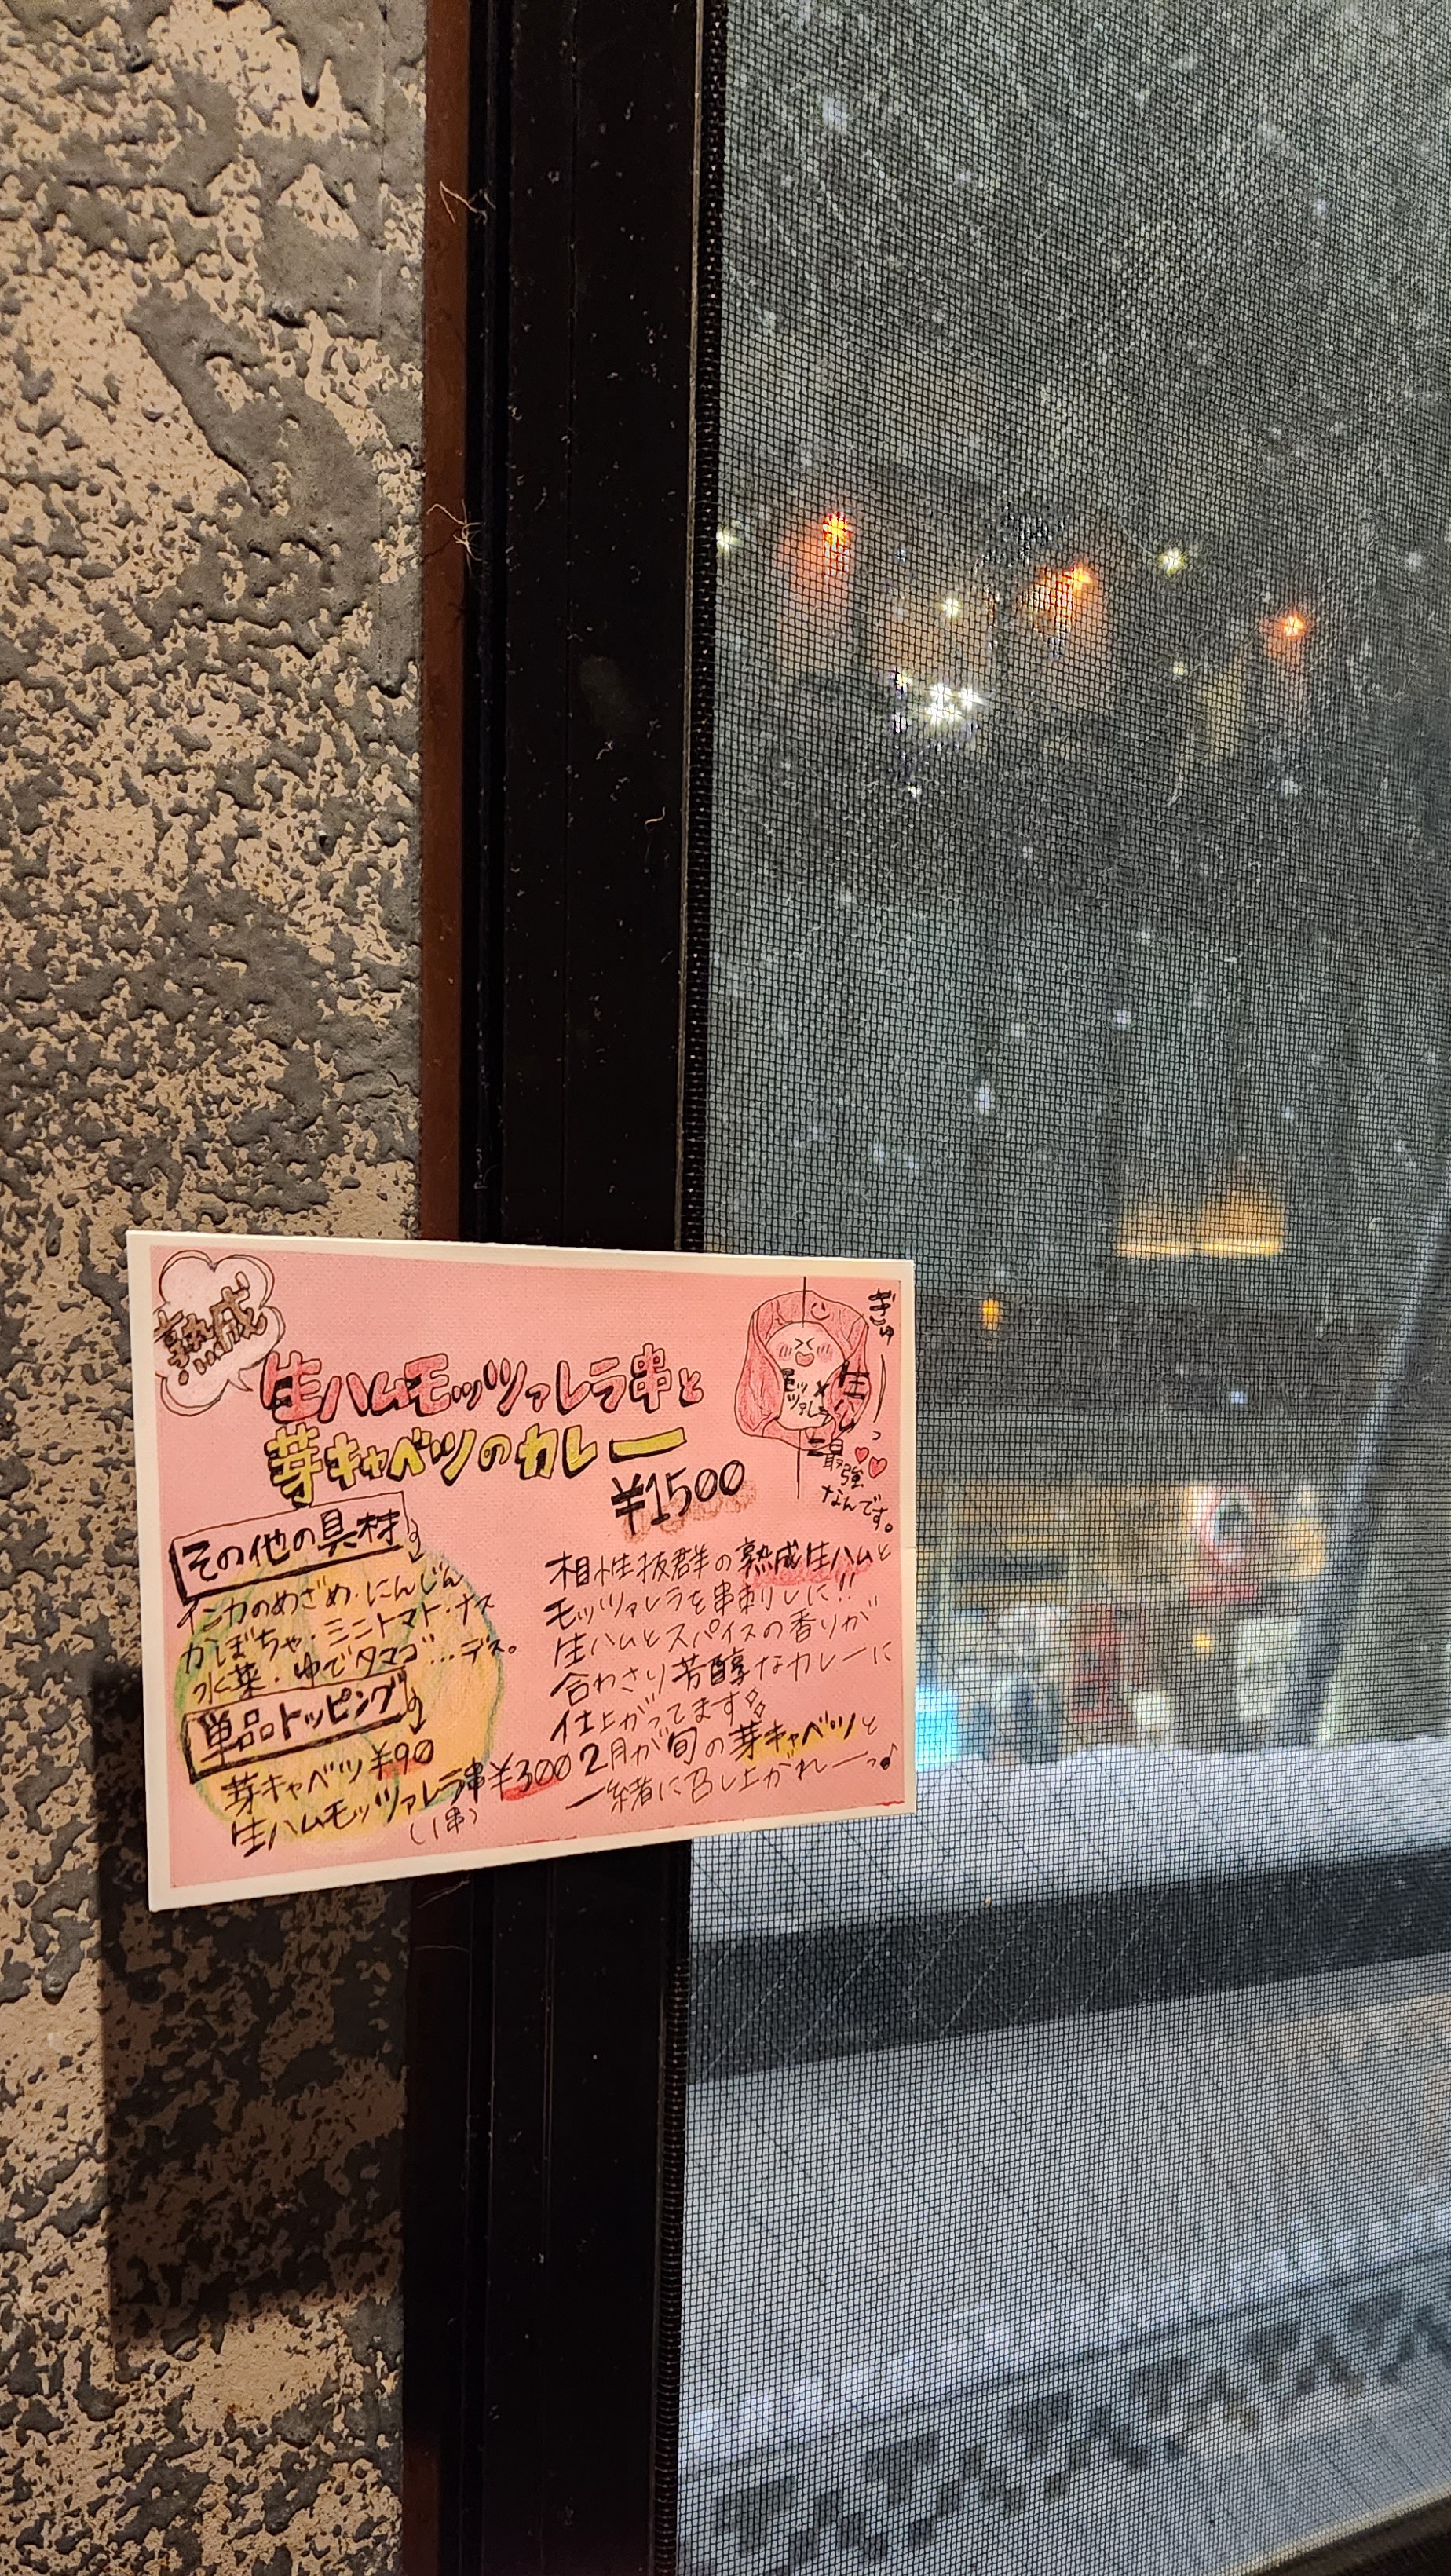 熟成
生ハムモッツァレラ串と
芽キャベツのカレー
¥1500
ぎゅーっ
モッツァレラ×生ハム
=最強
なんです。
その他の具材
インカのめざめ・にんじん
かぼちゃ・ミニトマト・ナス
水菜・ゆでタマゴ…デス。
単品トッピング
芽キャベツ¥90
生ハムモッツァレラ串¥300
(1串)
相性抜群の熟成生ハムと
モッツァレラを串刺しに!!
生ハムとスパイスの香りが
合わさり芳醇なカレーに
仕上がってます
2月が旬の芽キャベツと
一緒に召し上がれーっ♪